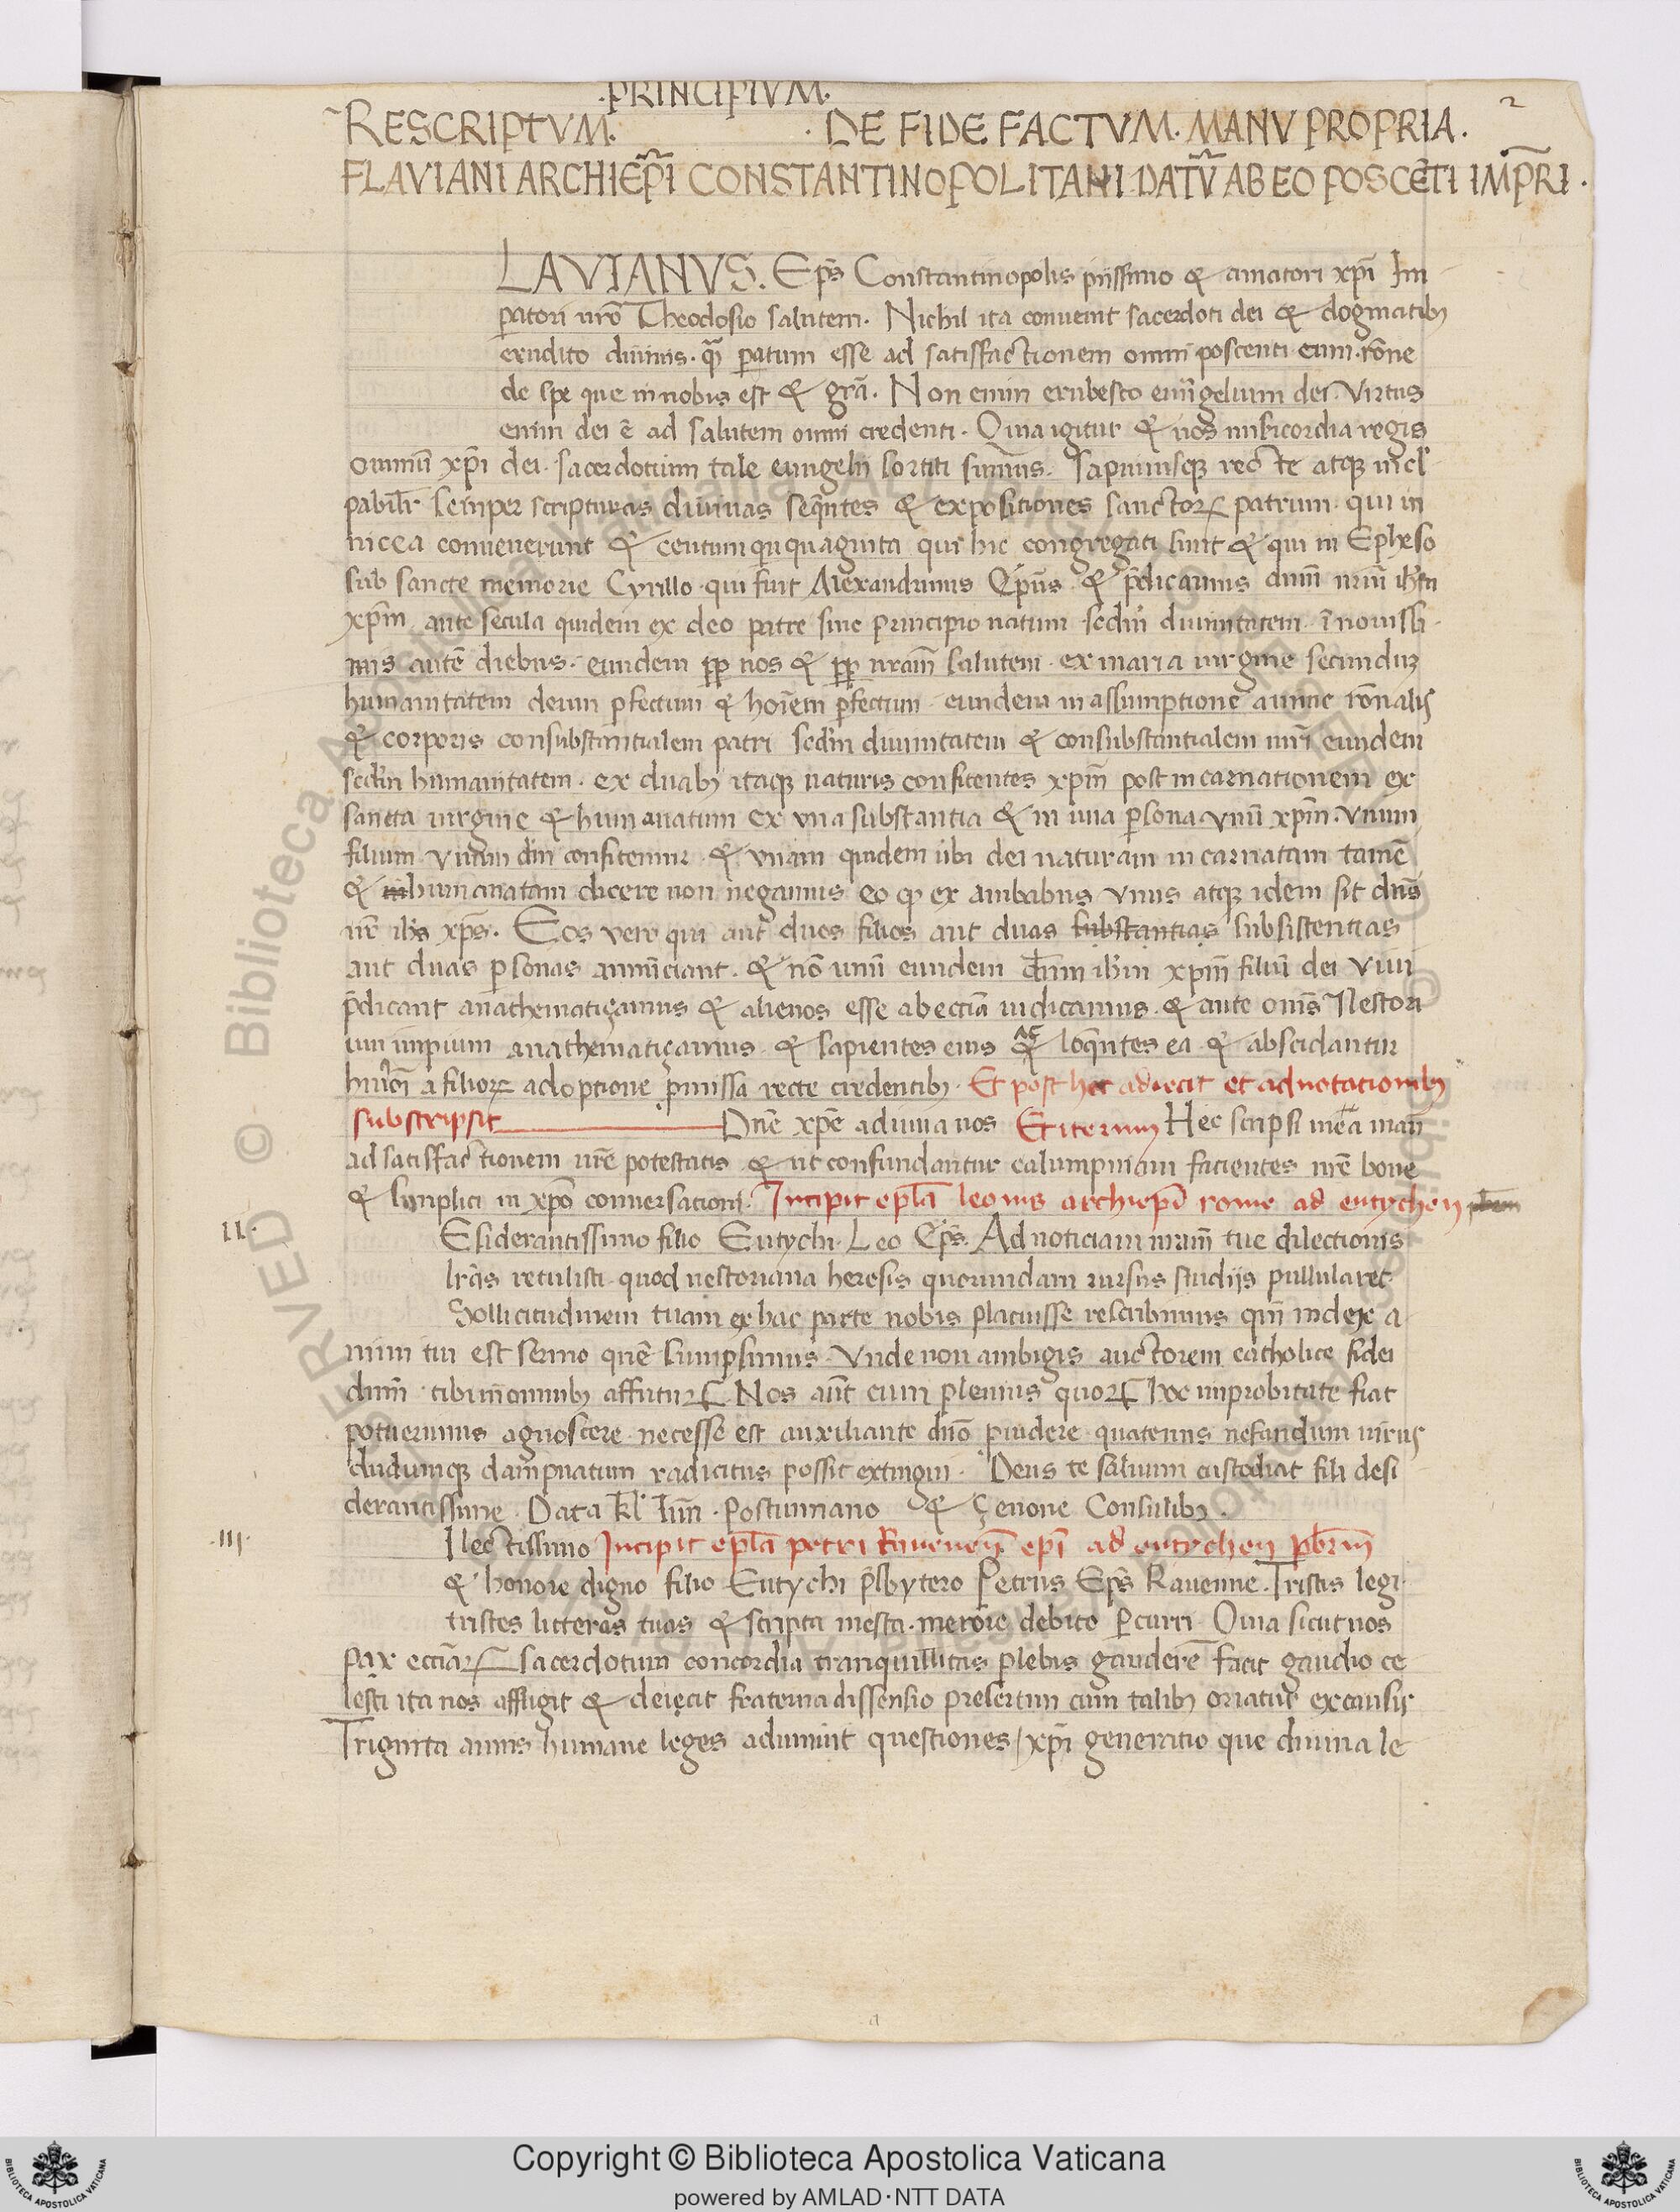 .PRINCIPIVM.
2
RESCRIPTVM. . DE FIDE FACTVM. MANV PROPRIA.
FLAVIANI ARCHIEP̃I CONSTANTINOPOLITANI DATṼ AB EO POSCẼTI IMP̃RI.
LAVIANVS. Ep̃s Constantinopolis piissimo & amatori xp̃i Im
patori nr̃o Theodosio salutem. Nichil ita conuenit sacerdoti dei & dogmatibꝫ
erudito diuinis. q̃ꝫ paratum esse ad satisfactionem omni poscenti eum. rõne
de spe que in nobis est & grã. Non enim erubesco euãgelium dei. Virtus
enim dei ẽ ad salutem omni credenti. Quia igitur & nos misericordia regis
omniũ xp̃i dei. sacerdotium tale euãgelij sortiti sumus. Sapimusqꝫ recte atqꝫ incl
pabiliꝉr semper scripturas diuinas seq̃ntes & expositiones sanctorꝝ patrum. qui in
nicea conuenerunt & centum quinquaginta qui hic congregati sunt & qui in Epheso
sub sancte memorie Cyrillo. qui fuit Alexandrinus Ep̃us. & p̃dicamus dñm nr̃m ihm̃
xp̃m ante secula quidem ex deo patre sine principio natum. sedm̃ diuinitatem. ĩ nouissi
mis autẽ diebus. eundem pp̃ nos & pp̃ nr̃am salutem. ex maria uirgine secundũ
humanitatem deum ꝑfectum & hoĩem ꝑfectum. eundem in assumptione anime rõnalis
& corporis consubstantialem patri sedm̃ diuinitatem & consubstantialem mr̃i eundem
sedm̃ humanitatem. ex duabꝫ itaqꝫ naturis confitentes xp̃m post incarnationem ex
sancta uirgine & humanatum ex vna substantia & in una ꝑsona vnũ xp̃m. vnum
filium. vnum dm̃ confitemur. & vnam quidem ubi dei naturam incarnatam tamẽ
& inhumanatam dicere non negamus eo ꝙ ex ambabus vnus atqꝫ idem sit dñs
nr̃ ihs̃ xp̃s. Eos vero qui aut duos filios aut duas substantias subsistentias
aut duas ꝑsonas annũciant. & nõ unũ eundem dñm ihm̃ xp̃m filiũ dei viui
p̃dicant anathematiçamus & alienos esse ab ecctĩa iudicamus. & ante om̃s Nestori
um impium anathematiçamus & sapientes eius ac & loq̃ntes ea. & abscidantur
hm̃oĩ a filiorꝝ adoptione p̃missa recte credentibꝫ. Et post hec adiecit et adnotationibꝫ
subscripsit Dñe xp̃e adiuua nos Et iterum Hec scripsi mea manũ
ad satisfactionem nr̃e potestatis & ut confundantur calumpniam facientes nr̃e bone
& simplici in xp̃o conuersationi. Incipit ep̃la leonis archiep̃i rome ad eutychen
II.
Esiderantissimo filio Eutychi. Leo Ep̃s. Ad noticiam nr̃am tue dilectionis
lr̃as retulisti. quod nestoriana heresis quorundam rursus studijs pullularet
Sollicitudinem tuam ex hac parte nobis placuisse rescribimus qm̃ index a
nimi tui est sermo quẽ sumpsimus. Vnde non ambigis auctorem catholice fidei
dñm tibi in omnibꝫ affuturꝝ. Nos aũt cum plenius quorꝝ hoc improbitate fiat
potuerimus agnoscere. necesse est auxiliante dño puidere. quatenus nefandum uirus
dudumqꝫ dampnatum radicitus possit extingui. Deus te saluum custodiat fili desi
derantissime. Data kl̃ Iuñ. Postumiano & Çenone Consulibꝫ.
.III.
Ilectissimo Incipit ep̃la petri Rauenneñ ep̃i ad eutychen p̃brm̃
& honore digno filio Eutychi p̃sbytero Petrus Ep̃s Rauenne. Tristis legi.
tristes litteras tuas & scripta mesta. merore debito ꝑcurri. Quia sicut nos
pax ecctĩarꝝ sacerdotum concordia tranquillitas plebis gaudere facit gaudio ce
lesti ita nos affligit & deiecit fraterna dissensio presertim cum talibꝫ oriatur ex causis
Triginta annis humane leges adimunt questiones / xp̃i generatio que diuina le
a
Copyright © Biblioteca Apostolica Vaticana
powered by AMLAD·NTT DATA